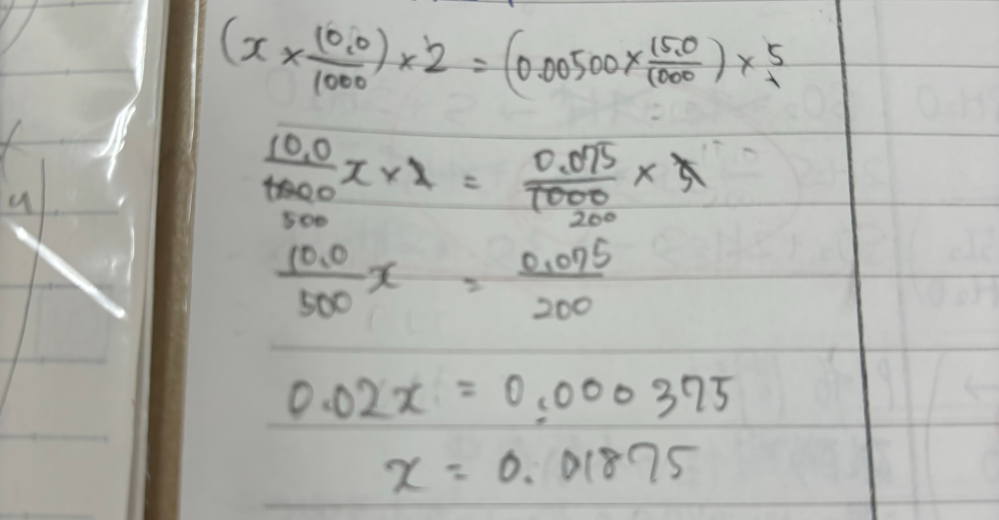 (x × 10.0/1000) × 2 = (0.00500 × 15.0/1000) × 5
10.0/1000 x × 2 = 0.075/1000 × 5
500 200
10.0/500 x = 0.075/200
0.02x = 0.000375
x = 0.01875